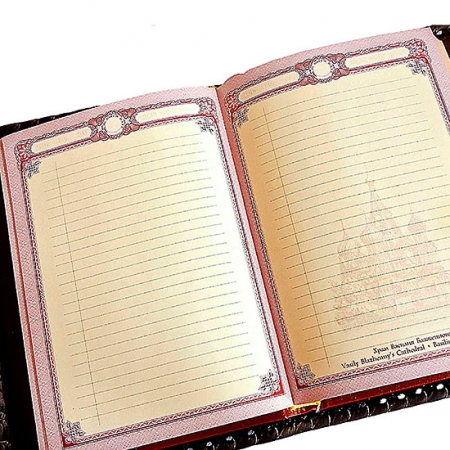 Храм Василия Блаженного
Vasily Blazhenny's Cathedral •